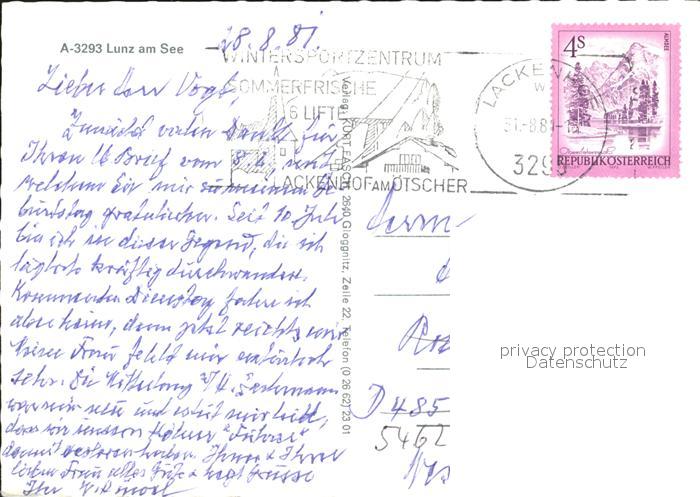 A-3293 Lunz am See
28.8.81.
WINTERSPORTZENTRUM
SOMMERFRISCHE
6 LIFTE
LACKENHOF AM ÖTSCHER
LACKENHOF
31.-8.81-1
3295
4s
ALMSEE
REPUBLIK ÖSTERREICH
Lieber Herr Vogt,
Zunächst vielen Dank für
Ihren lb Brief vom 8.8., mit
welchem Sie mir zu meinem Ge-
burtstag gratulieren. Seit 10. Juli
bin ich in dieser Gegend, die ich
täglich kräftig durchwandere.
Kommenden Dienstag fahre ich
aber heim, denn jetzt reichts mir.
Meine Frau fehlt mir
sehr. Die Mitteilung
war mir neu und es tut mir leid,
dass wir unseren Kölner
damit verloren haben. Ihnen & Ihrer
lieben Frau alles Gute & herzl Grüsse
Ihr
Verlag: 2640 Gloggnitz, Zeile 22, Telefon (0 26 62) 23 01
Herrn
D 485
5462
privacy protection
Datenschutz